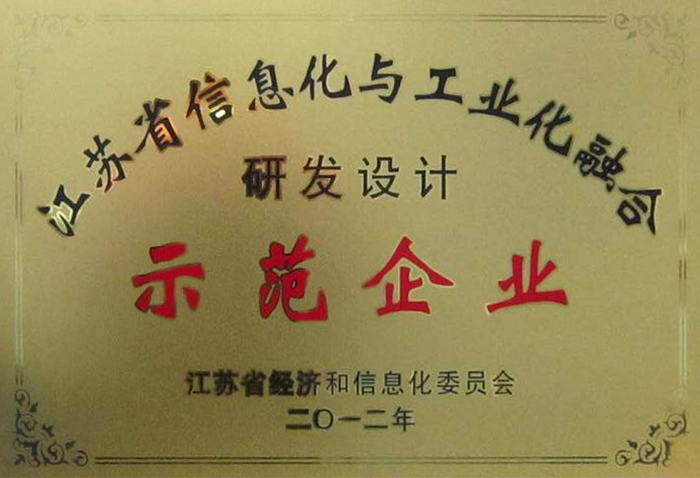 江苏省信息化与工业化融合
研发设计
示范企业
江苏省经济和信息化委员会
二〇一二年